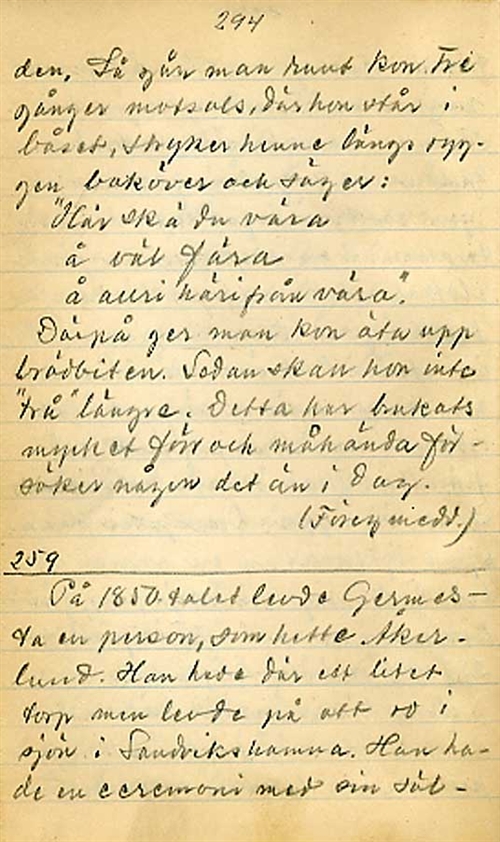 294
den. Så går man runt kon tre
gånger motsols, där hon står i
båset, stryker henne längs ryg-
gen bakåver och säger:
"Här ska du vära
å väl fära
å auri härifrån vära".
Därpå ger man kon äta upp
brödbiten. Sedan skall hon inte
"trå" längre. Detta har brukats
mycket förr och måhända för-
söker någon det än i dag.
(Föreg. medd.)
259
På 1850-talet levde Germes-
ta en person, som hette Åker-
lund. Han hade där ett litet
torp men levde på att ro i
sjön i Sandvikshamna. Han ha-
de en ceremoni med sin säl-